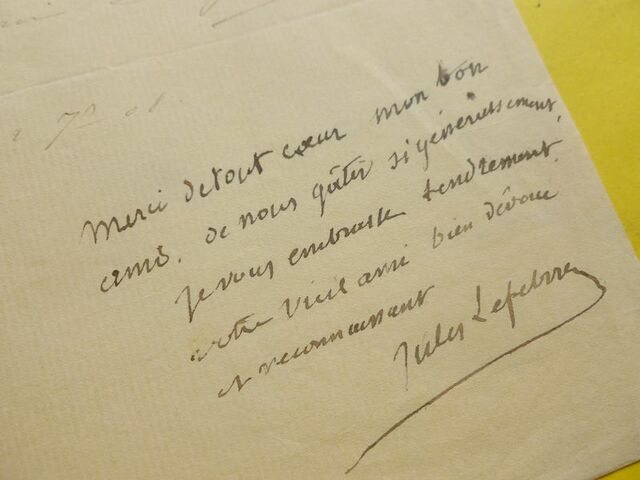 Merci de tout cœur mon bon
ami, de nous gâter si généreusement,
je vous embrasse tendrement.
votre vieil ami bien dévoué
et reconnaissant
Jules Lefebvre